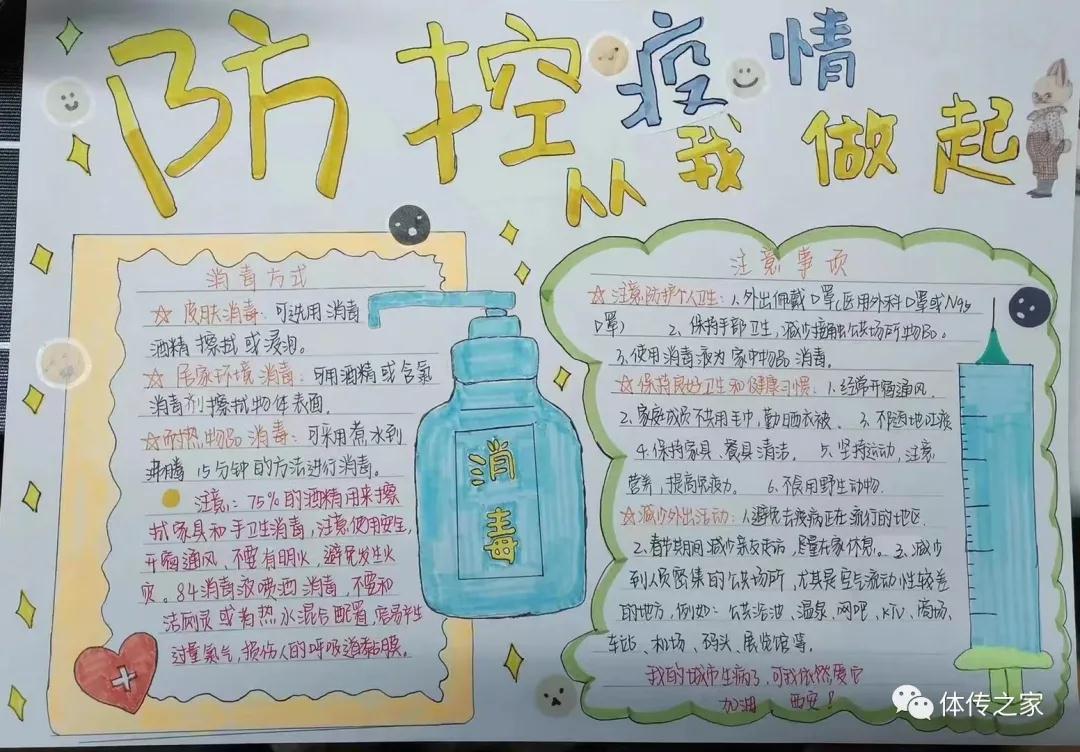 防控疫情
从我做起
消毒方式
☆ 皮肤消毒：可选用消毒
酒精擦拭或浸泡。
☆ 居家环境消毒：可用酒精或含氯
消毒剂擦拭物体表面。
☆耐热物品消毒：可采用煮水到
沸腾15分钟的方法进行消毒。
注意：75%的酒精用来擦
拭家具和手卫生消毒，注意使用安全，
开窗通风，不要有明火，避免发生火
灾。84消毒液喷洒消毒，不要和
洁厕灵或者热水混合配置，容易产生
过量氯气，损伤人的呼吸道黏膜。
消
毒
注意事项
☆ 注意防护个人卫生：1.外出佩戴口罩（医用外科口罩或N95
口罩） 2、保持手部卫生，减少接触公共场所物品。
3.使用消毒液为家中物品消毒。
☆保持良好卫生和健康习惯：1.经常开窗通风.
2.家庭成员不共用毛巾，勤晒衣被、 3、不随地吐痰
4.保持家具、餐具清洁. 5.坚持运动，注意
营养，提高免疫力。 6.不食用野生动物.
☆减少外出活动：1.避免去疾病正在流行的地区.
2.春节期间减少亲友走访，尽量在家休息。3.减少
到人员密集的公共场所，尤其是空气流动性较差
的地方，例如：公共浴池、温泉、网吧、KTV、商场、
车站、机场、码头、展览馆等。
我的城市生病了，可我依然爱它
加油 西安！
体传之家